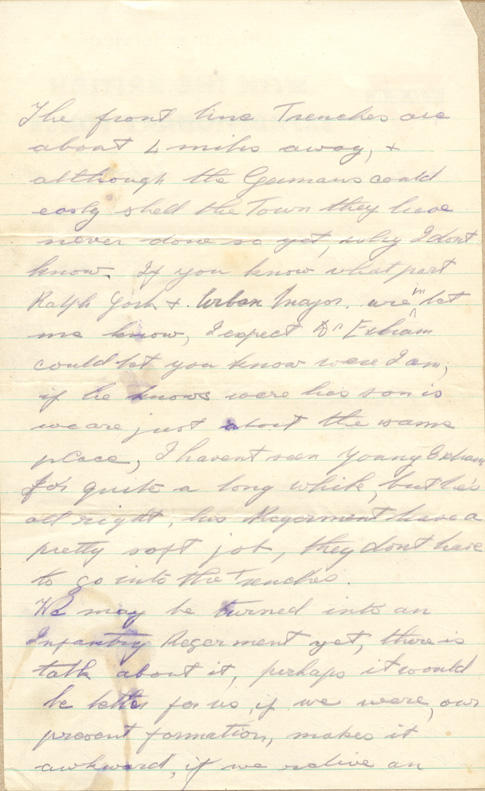 The front line Trenches are
about 4 miles away, +
although the Germans could
easly shell the Town they have
never done so yet, why I dont
know. If you know what part
Ralph York + Urban Major. are in let
me know, I expect Dr Exham
could let you know were I am,
if he knows were his son is
we are just about the same
place, I havent seen young Exham
for quite a long while, but he's
all right, his Regerment have a
pretty soft job, they dont have
to go into the Trenches.
We may be turned into an
Infantry Regerment yet, there is
talk about it, perhaps it would
be better for us, if we were, our
present formation, makes it
awkward, if we relive an